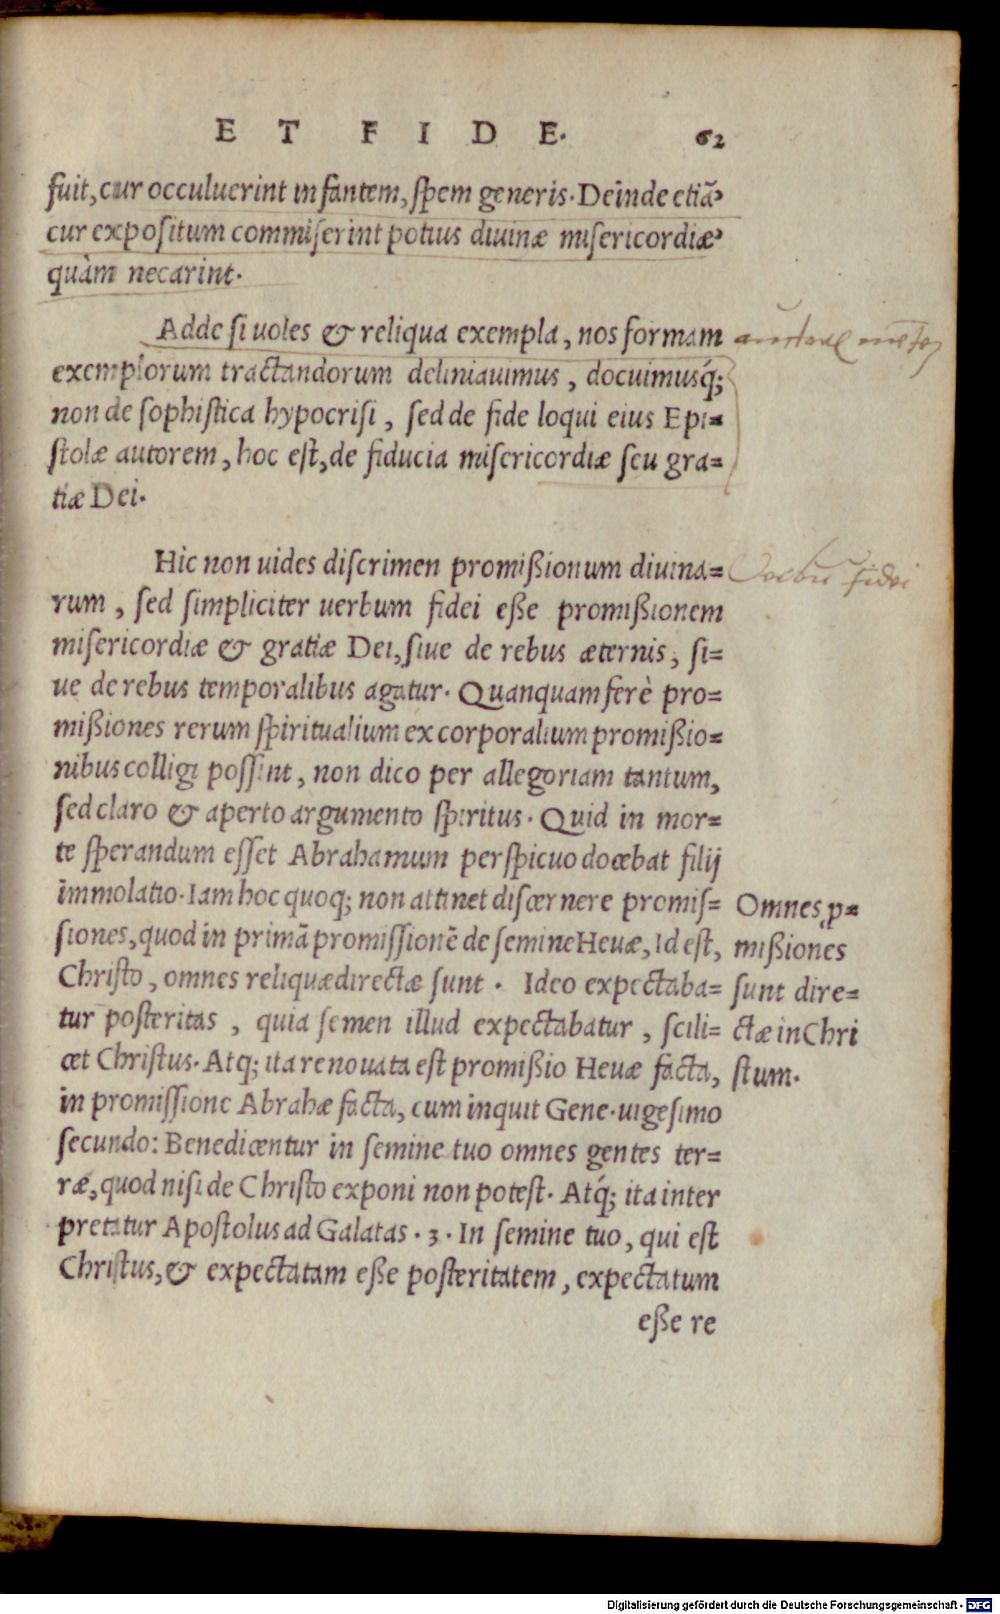 ET FIDE. 62
fuit, cur occuluerint infantem, spem generis. Deinde etiã
cur expositum commiserint potius diuinæ misericordiæ
quàm necarint.
Adde si uoles & reliqua exempla, nos formam
exemplorum tractandorum deliniauimus, docuimusq́;
non de sophistica hypocrisi, sed de fide loqui eius Epi=
stolæ autorem, hoc est, de fiducia misericordiæ seu gra=
tiæ Dei.
Hic non uides discrimen promißionum diuina=
rum, sed simpliciter uerbum fidei eße promißionem
misericordiæ & gratiæ Dei, siue de rebus æternis, si=
ue de rebus temporalibus agatur. Quanquam ferè pro=
mißiones rerum spiritualium ex corporalium promißio=
nibus colligi possint, non dico per allegoriam tantum,
sed claro & aperto argumento spiritus. Quid in mor=
te sperandum esset Abrahamum perspicuo docebat filij
immolatio. Iam hoc quoq; non attinet discernere promis=
siones, quod in primã promissionẽ de semine Heuæ, Id est,
Christo, omnes reliquæ directæ sunt. Ideo expectaba=
tur posteritas, quia semen illud expectabatur, scili=
cet Christus. Atq; ita renouata est promißio Heuæ facta,
in promissione Abrahæ facta, cum inquit Gene. uigesimo
secundo: Benedicentur in semine tuo omnes gentes ter=
ræ, quod nisi de Christo exponi non potest. Atq́; ita inter
pretatur Apostolus ad Galatas. 3. In semine tuo, qui est
Christus, & expectatam eße posteritatem, expectatum
eße re
Verbũ fidei
Omnes p=
mißiones
sunt dire=
ctæ in Chri
stum.
Digitalisierung gefördert durch die Deutsche Forschungsgemeinschaft - DFG